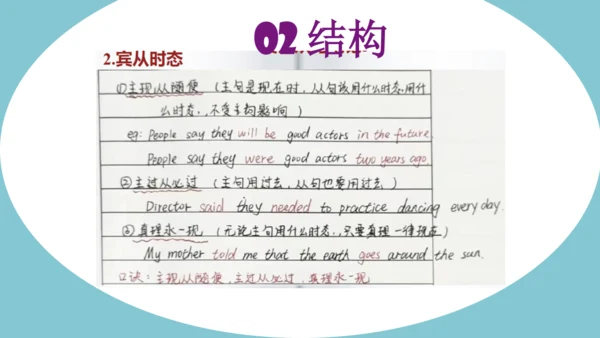 02 结构
2.宾从时态
①主现从随便（主句是现在时，从句该用什么时态用什
么时态，不受主句影响）
eg: People say they will be good actors in the future.
People say they were good actors two years ago
②主过从必过（主句用过去，从句也要用过去）
Director said they needed to practice dancing every day.
③真理永一现（无论主句用什么时态，只要真理一律现在）
My mother told me that the earth goes around the sun.
口诀：主现从随便，主过从必过，真理永一现